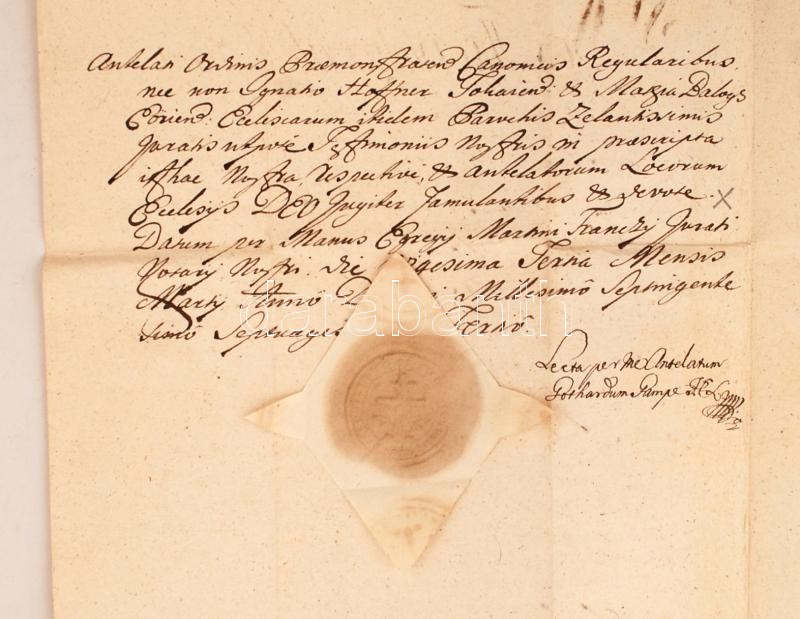 Antelati Ordinis Præmonstratens Canonicis Regularibus
nec non Ignatio Hoffner Tokaiend & Magia
Ecclesiarum itidem Parochis Zelantissimis
Juratis utpote Testimoniis Nostris in præscripta
isthac Nostra respective, & antelatorum Locorum
Ecclesijs DEO jugiter famulantibus & devote
Datum per Manus Egregij Martini Franczy Jurati
Notarij Nostri die Tertia Mensis
Martij Anno Millesimô Septingente
simô Tertiô
Lecta per me Antelatum
Gothardum
darabanth